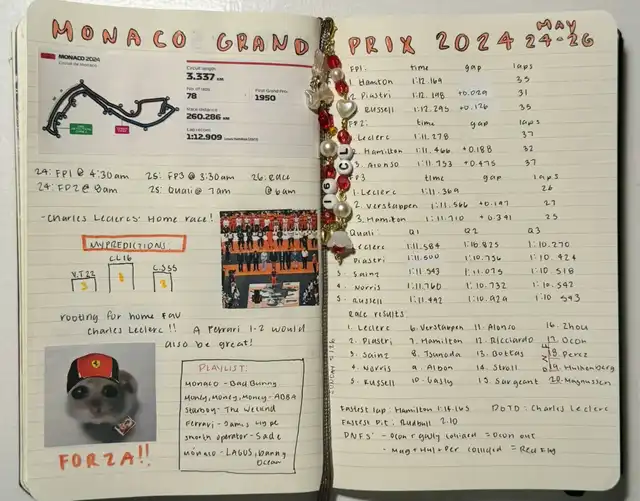 MONACO GRAND PRIX 2024 MAY 24-26
MONACO 2024
Circuit de Monaco
Circuit length
3.337 KM
No of laps
78
First Grand Prix
1950
Race distance
260.286 KM
Lap record
1:12.909
24: FP1 @ 4:30am 25: FP3 @ 3:30am 26: Race
24: FP2 @ 8am 25: Quali @ 7am @ 6am
-Charles Leclercs' Home Race!
MY PREDICTIONS:
C.L 16
Y.T 22
C.S 55
3
1
2
rooting for home fav
Charles Leclerc!! A Ferrari 1-2 would
also be great!
PLAYLIST:
Monaco - Bad Bunny
Money, Money, Money - ABBA
Starboy - The Weeknd
Ferrari - James Hype
Smooth operator - Sade
Monaco - LAGOS, Danny
Ocean
FORZA!!
16 CL
FP1: time gap laps
1. Hamilton 1:12.169 35
2. Piastri 1:12.198 +0.029 31
Russell 1:12.295 +0.126 35
FP2: time gap laps
Leclerc 1:11.278 37
2. Hamilton 1:11.466 +0.188 32
3. Alonso 1:11.753 +0.475 37
FP3 time gap laps
1. Leclerc 1:11.369 26
2. Verstappen 1:11.566 +0.197 27
3. Hamilton 1:11.710 +0.341 25
Quali: Q1 Q2 Q3
Leclerc 1:11.584 1:10.825 1:10.270
Piastri 1:11.500 1:10.756 1:10.424
3. Sainz 1:11.543 1:11.075 1:10.518
4. Norris 1:11.760 1:10.732 1:10.542
5. Russell 1:11.492 1:10.929 1:10.543
Race results:
1. Leclerc 6. Verstappen 11. Alonso 16. Zhou
2. Piastri 7. Hamilton 12. Ricciardo 17. Ocon
3. Sainz 8. Tsunoda 13. Bottas 18. Perez
4. Norris 9. Albon 14. Stroll 19. Hulkenberg
5. Russell 10. Gasly 15. Sargeant 20. Magnussen
DNF
Fastest lap: Hamilton 1:14.165 DOTD: Charles Leclerc
Fastest Pit: Redbull 2.10
DNFS' - Ocon + gasly collided = Ocon out
- Mag + Hul + Per collided = Red Flag